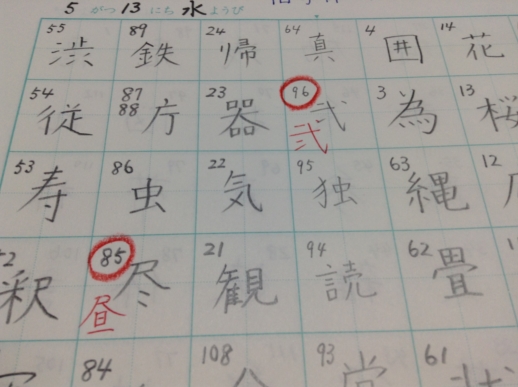 5 がつ 13 にち 水 ようび
55 渋 89 鉄 24 帰 64 真 4 囲 14 花
54 従 87 88 庁 23 器 96 弐 弐 3 為 13 桜
53 寿 86 虫 22 気 95 独 63 縄 12
釈 85 尽 昼 21 観 94 読 62 畳
84 108 93 61